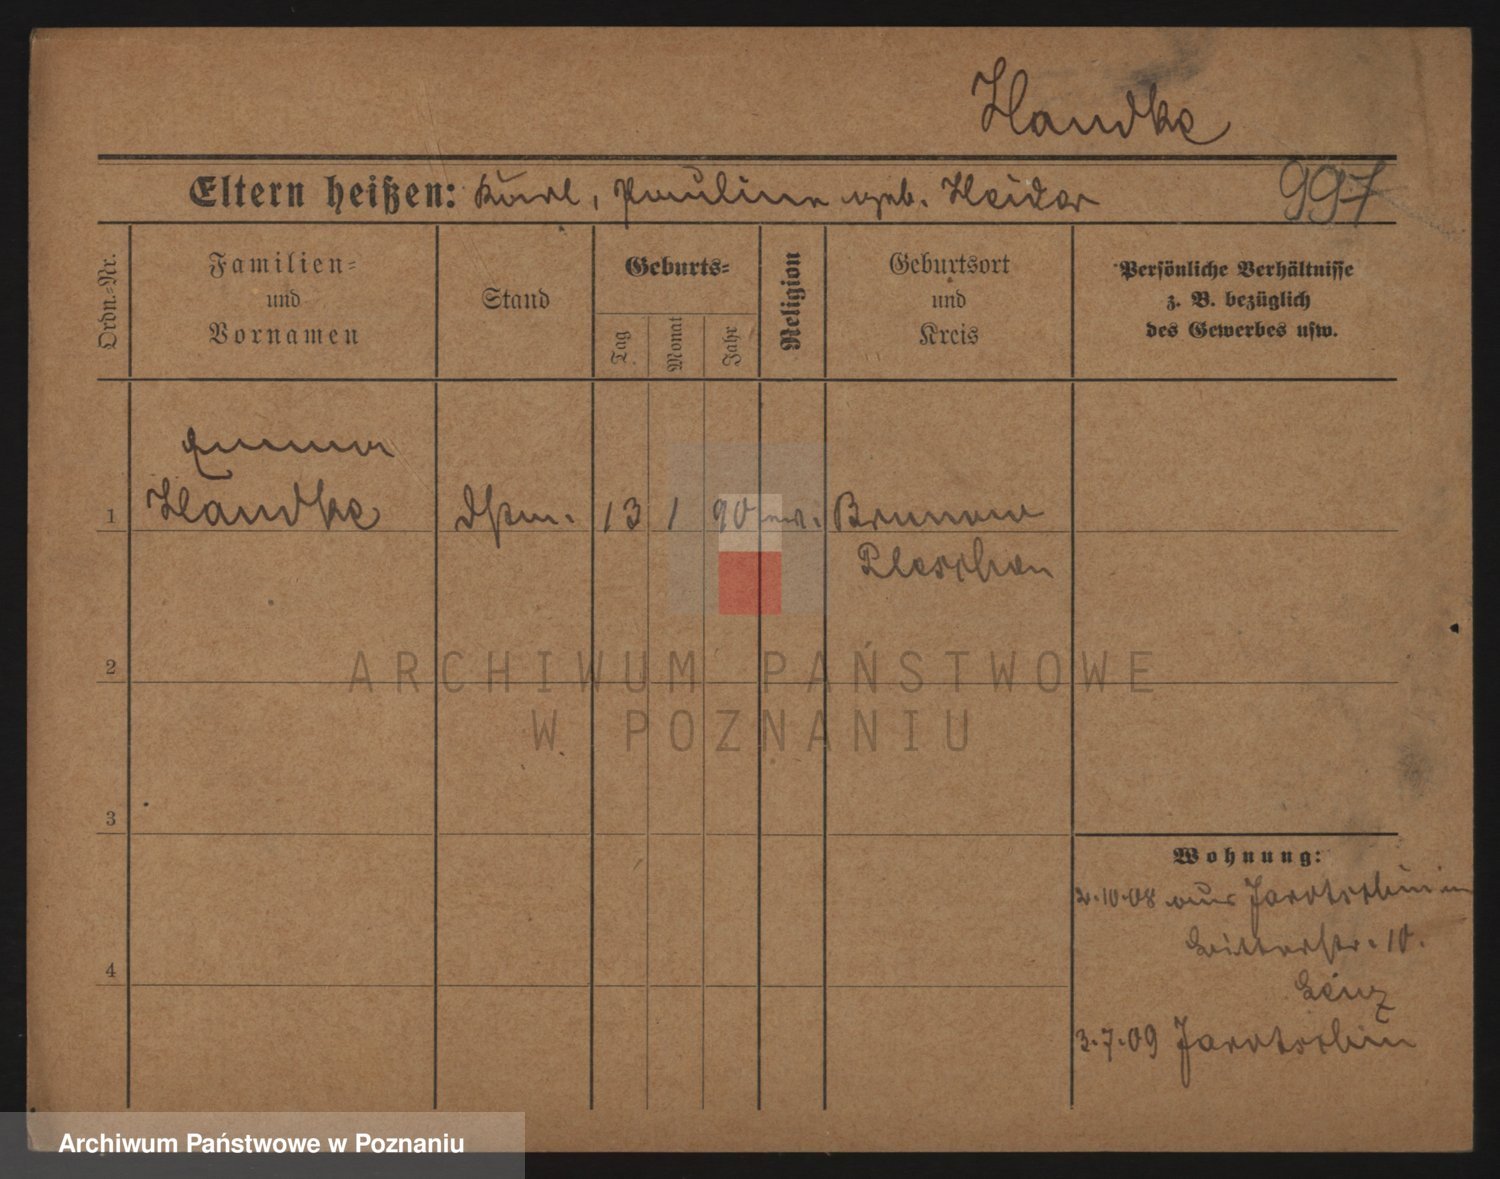 Handke
Eltern heißen: Karl, Pauline geb. Heider
997
Ordn.-Nr.
Familien-
und
Vornamen
Stand
Geburts-
Tag
Monat
Jahr
Religion
Geburtsort
und
Kreis
Persönliche Verhältnisse
z. B. bezüglich
des Gewerbes usw.
Emma
1 Handke 13 1 90 Brunow
Pleschen
2
3
4
ARCHIWUM PAŃSTWOWE
W POZNANIU
Wohnung:
2.10.08 aus Jarotschin in
Ritterstr. 10.
3.7.09 Jarotschin
Archiwum Państwowe w Poznaniu